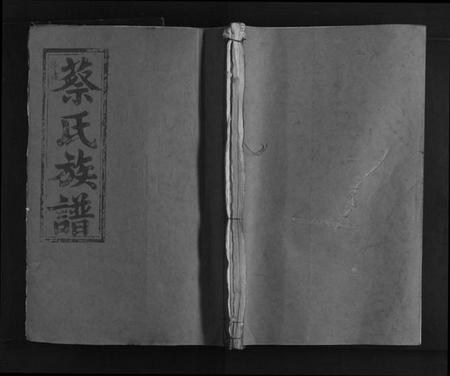 蔡氏族譜